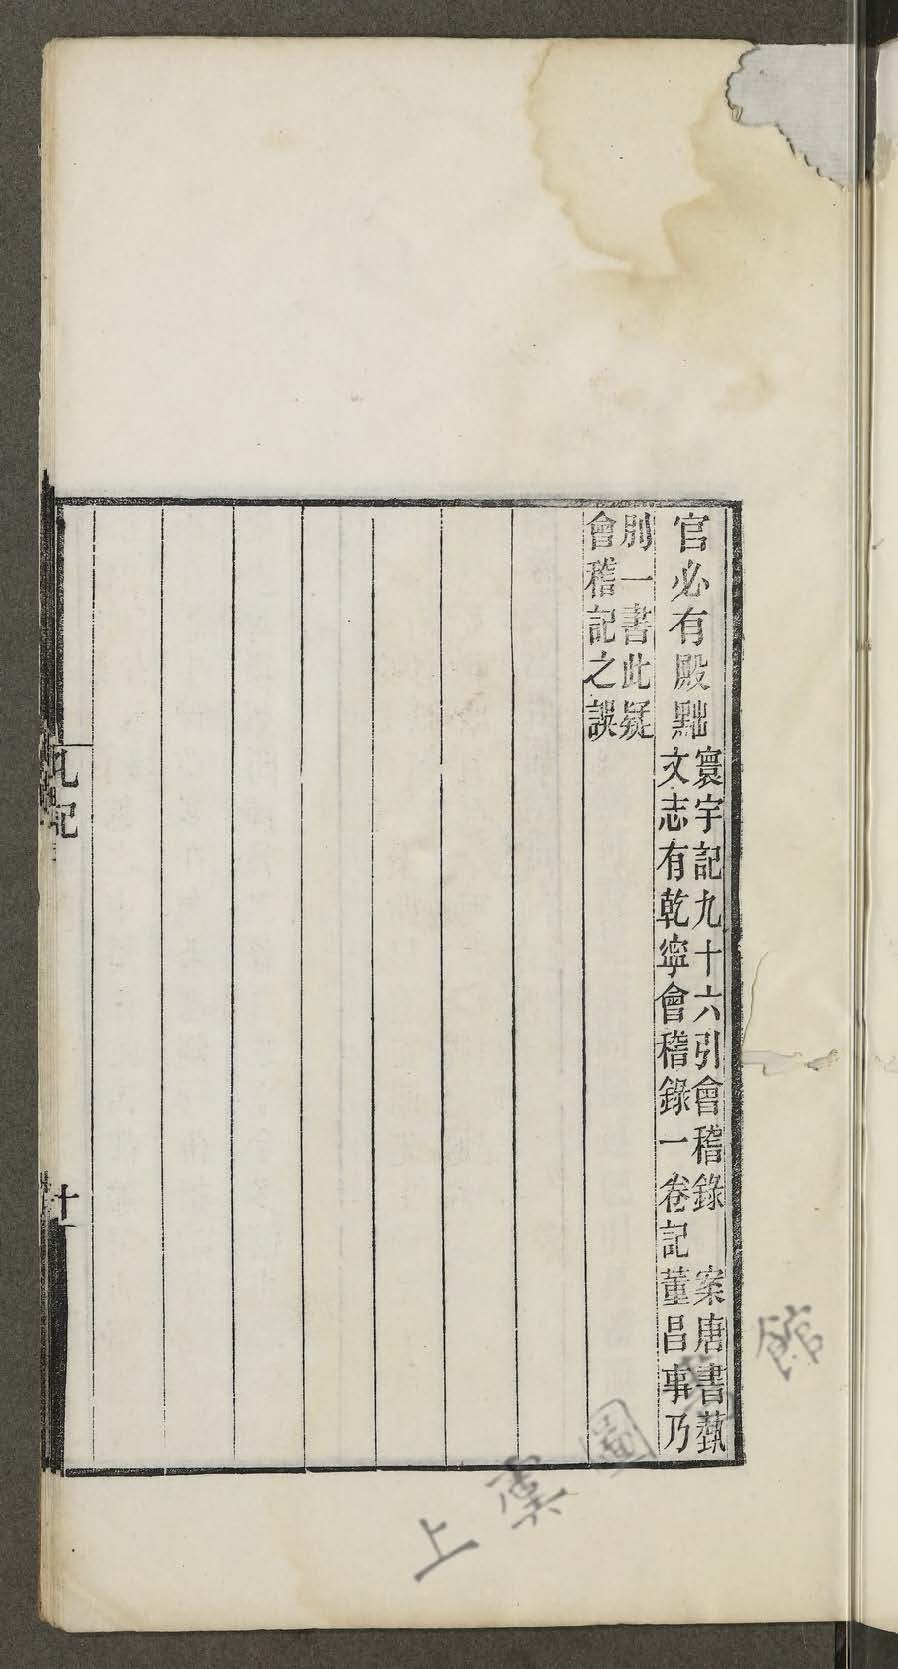 官必有殿黜
寰宇記九十六引會稽錄　案唐書藝
文志有乾寧會稽錄一卷記董昌事乃
別一書此疑
會稽記之誤
札記
十
上虞圖書館